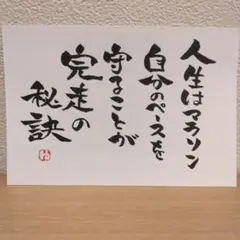 人生はマラソン
自分のペースを
守ることが
完走の
秘訣